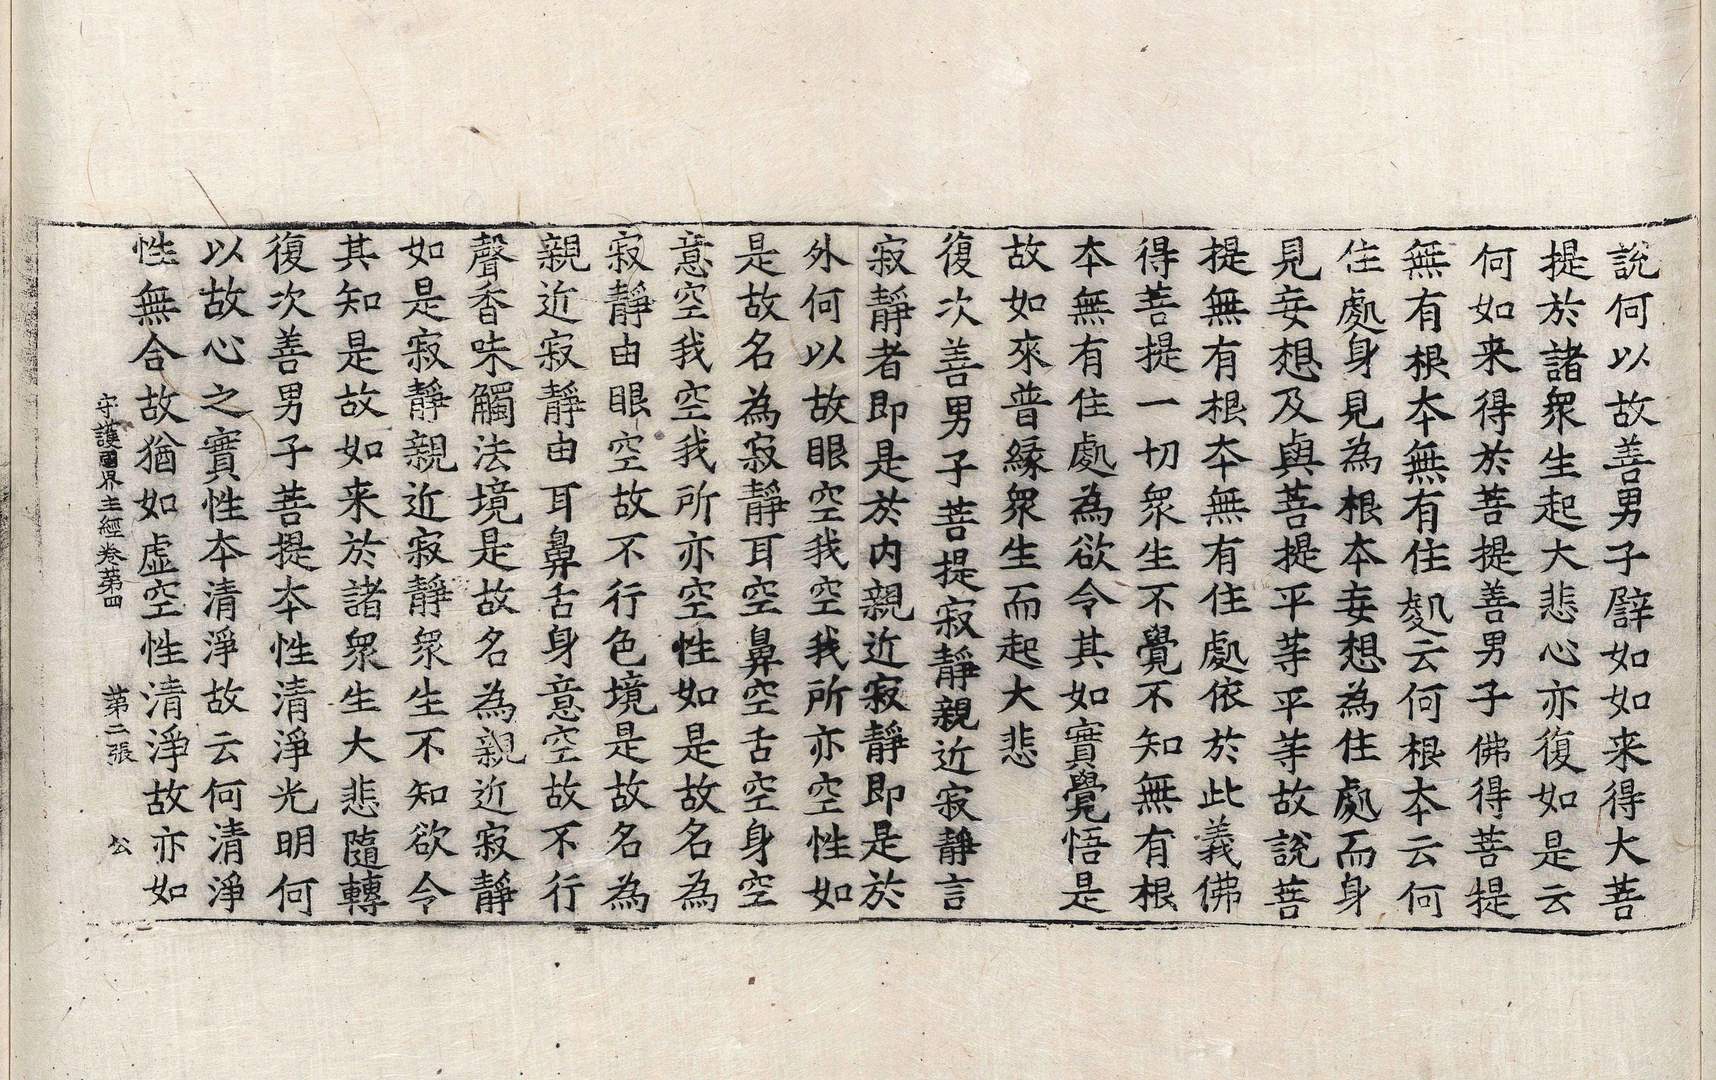 說何以故善男子譬如如来得大菩
提於諸衆生起大悲心亦復如是云
何如来得於菩提善男子佛得菩提
無有根本無有住處云何根本云何
住處身見為根本妄想為住處而身
見妄想及與菩提平等平等故說菩
提無有根本無有住處依於此義佛
得菩提一切衆生不覺不知無有根
本無有住處為欲令其如實覺悟是
故如來普緣衆生而起大悲
復次善男子菩提寂靜親近寂靜言
寂靜者即是於内親近寂靜即是於
外何以故眼空我空我所亦空性如
是故名為寂靜耳空鼻空舌空身空
意空我空我所亦空性如是故名為
寂靜由眼空故不行色境是故名為
親近寂靜由耳鼻舌身意空故不行
聲香味觸法境是故名為親近寂靜
如是寂靜親近寂靜衆生不知欲令
其知是故如来於諸衆生大悲隨轉
復次善男子菩提本性清淨光明何
以故心之實性本清淨故云何清淨
性無合故猶如虛空性清淨故亦如
守護國界主經卷第四　第二張　公